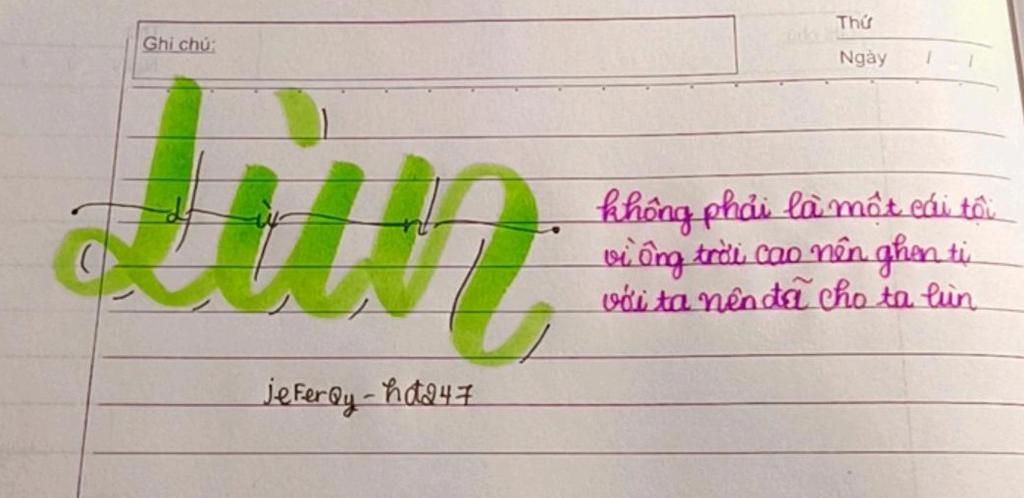 Ghi chú:
Thứ
Ngày / /
Lùn
lùn
không phải là một cái tội
vì ông trời cao nên ghen tị
với ta nên đã cho ta lùn
jeFerQy - hd247